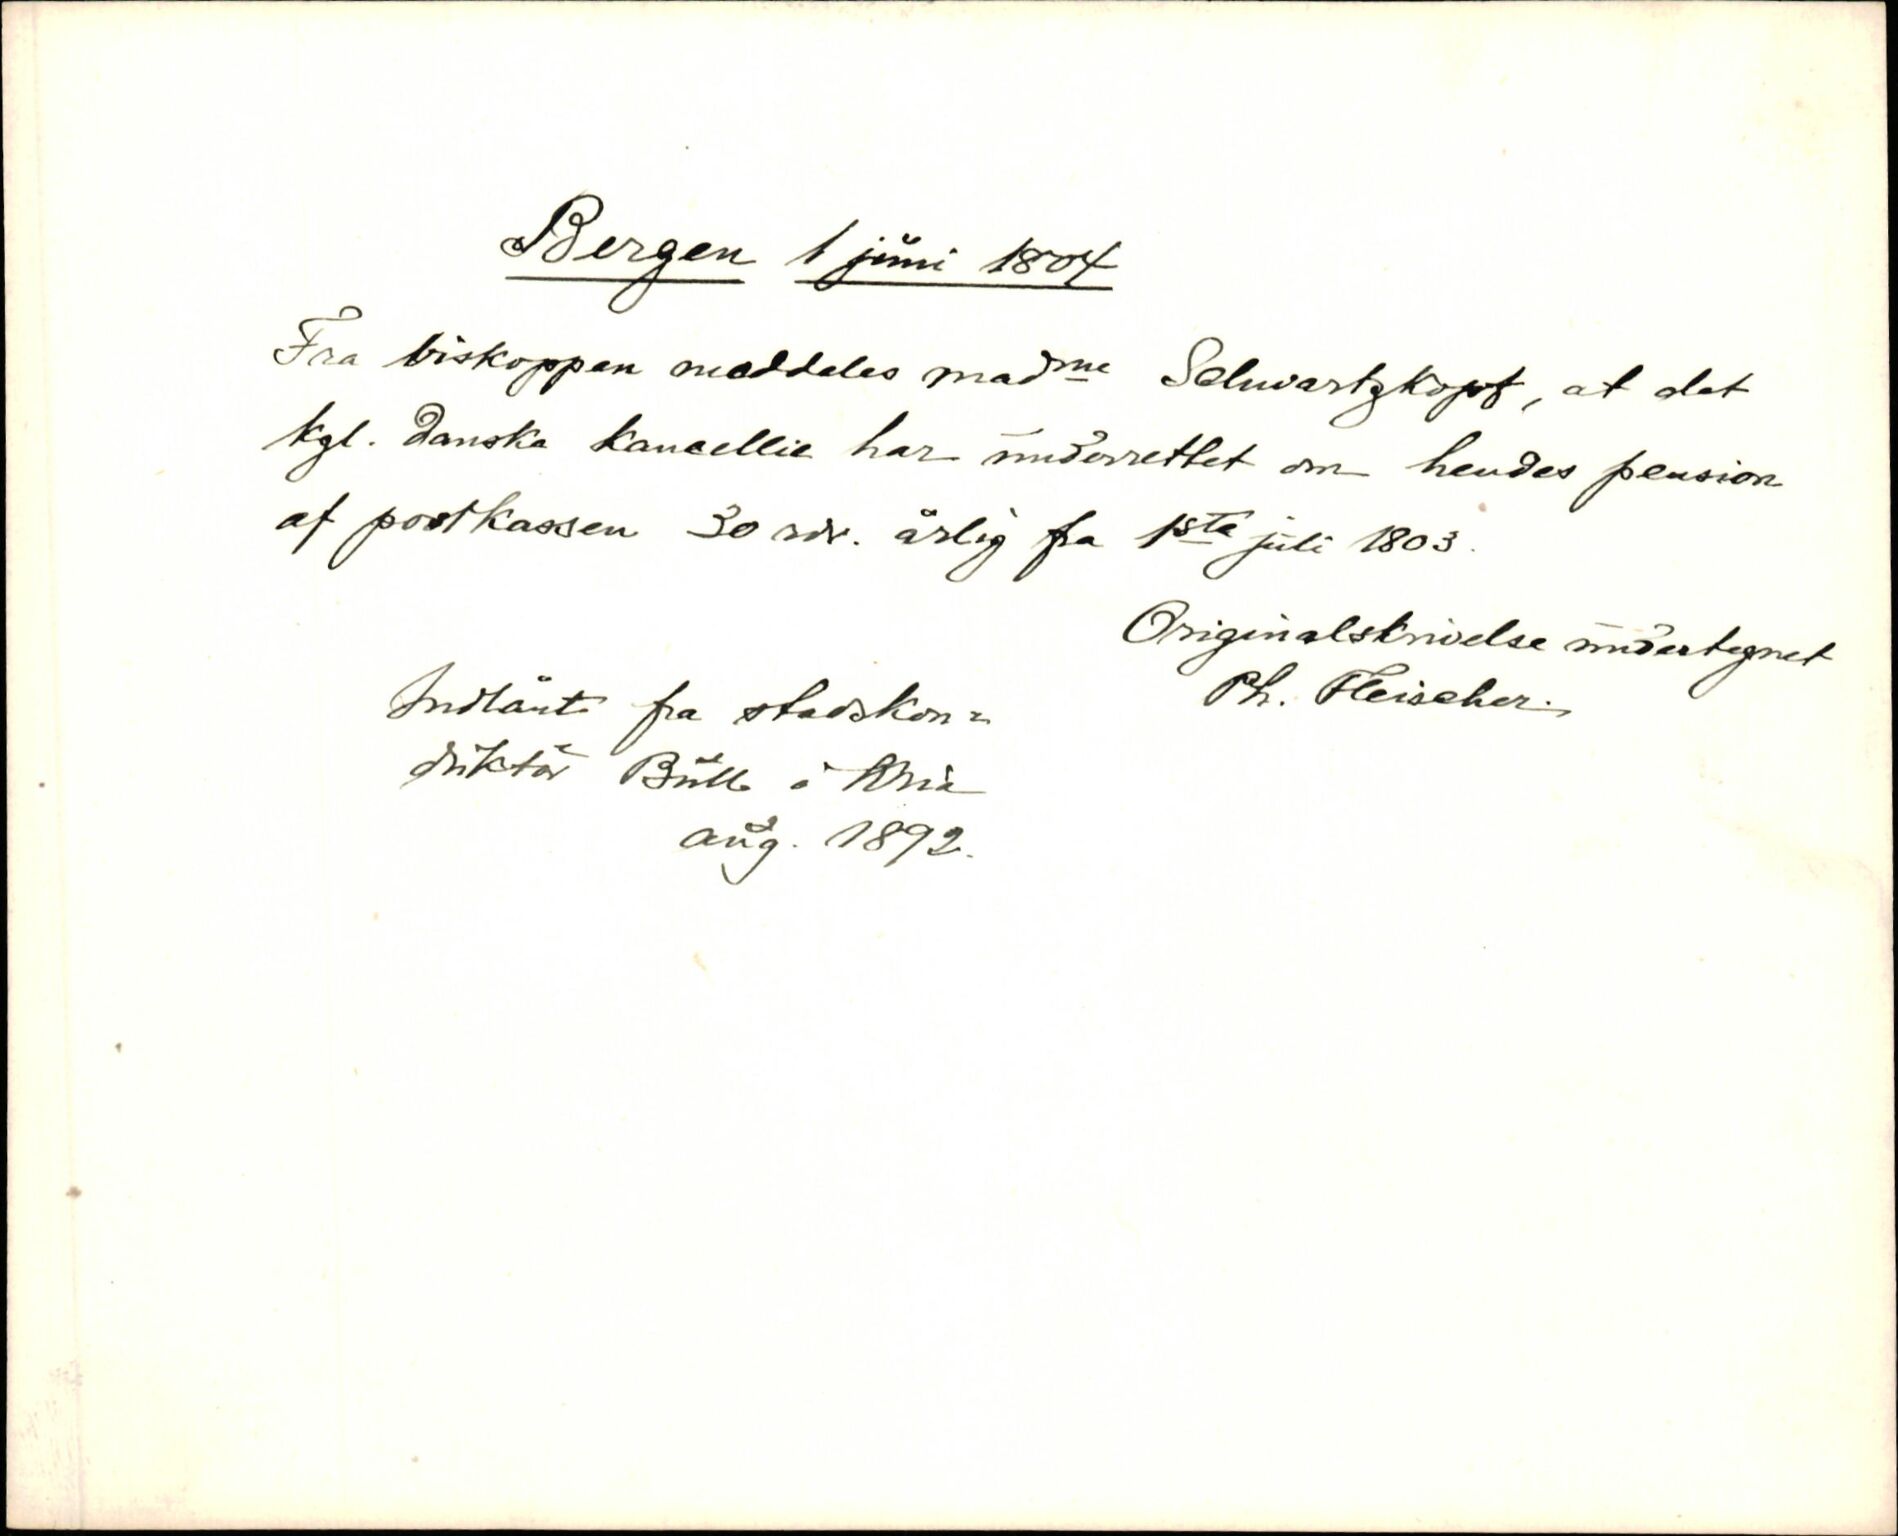 Bergen 1 juni 1804
Fra biskoppen meddeles mad<sup>me</sup> Schwartzkopf, at det
kgl. danske kancellie har underrettet om hendes pension
af postkassen 30 rdr. årlig fra 1<sup>ste</sup> juli 1803.
Originalskrivelse undertegnet
Ph. Fleischer.
Indlånt fra stadskon=
duktör Bull i Kria
aug. 1892.